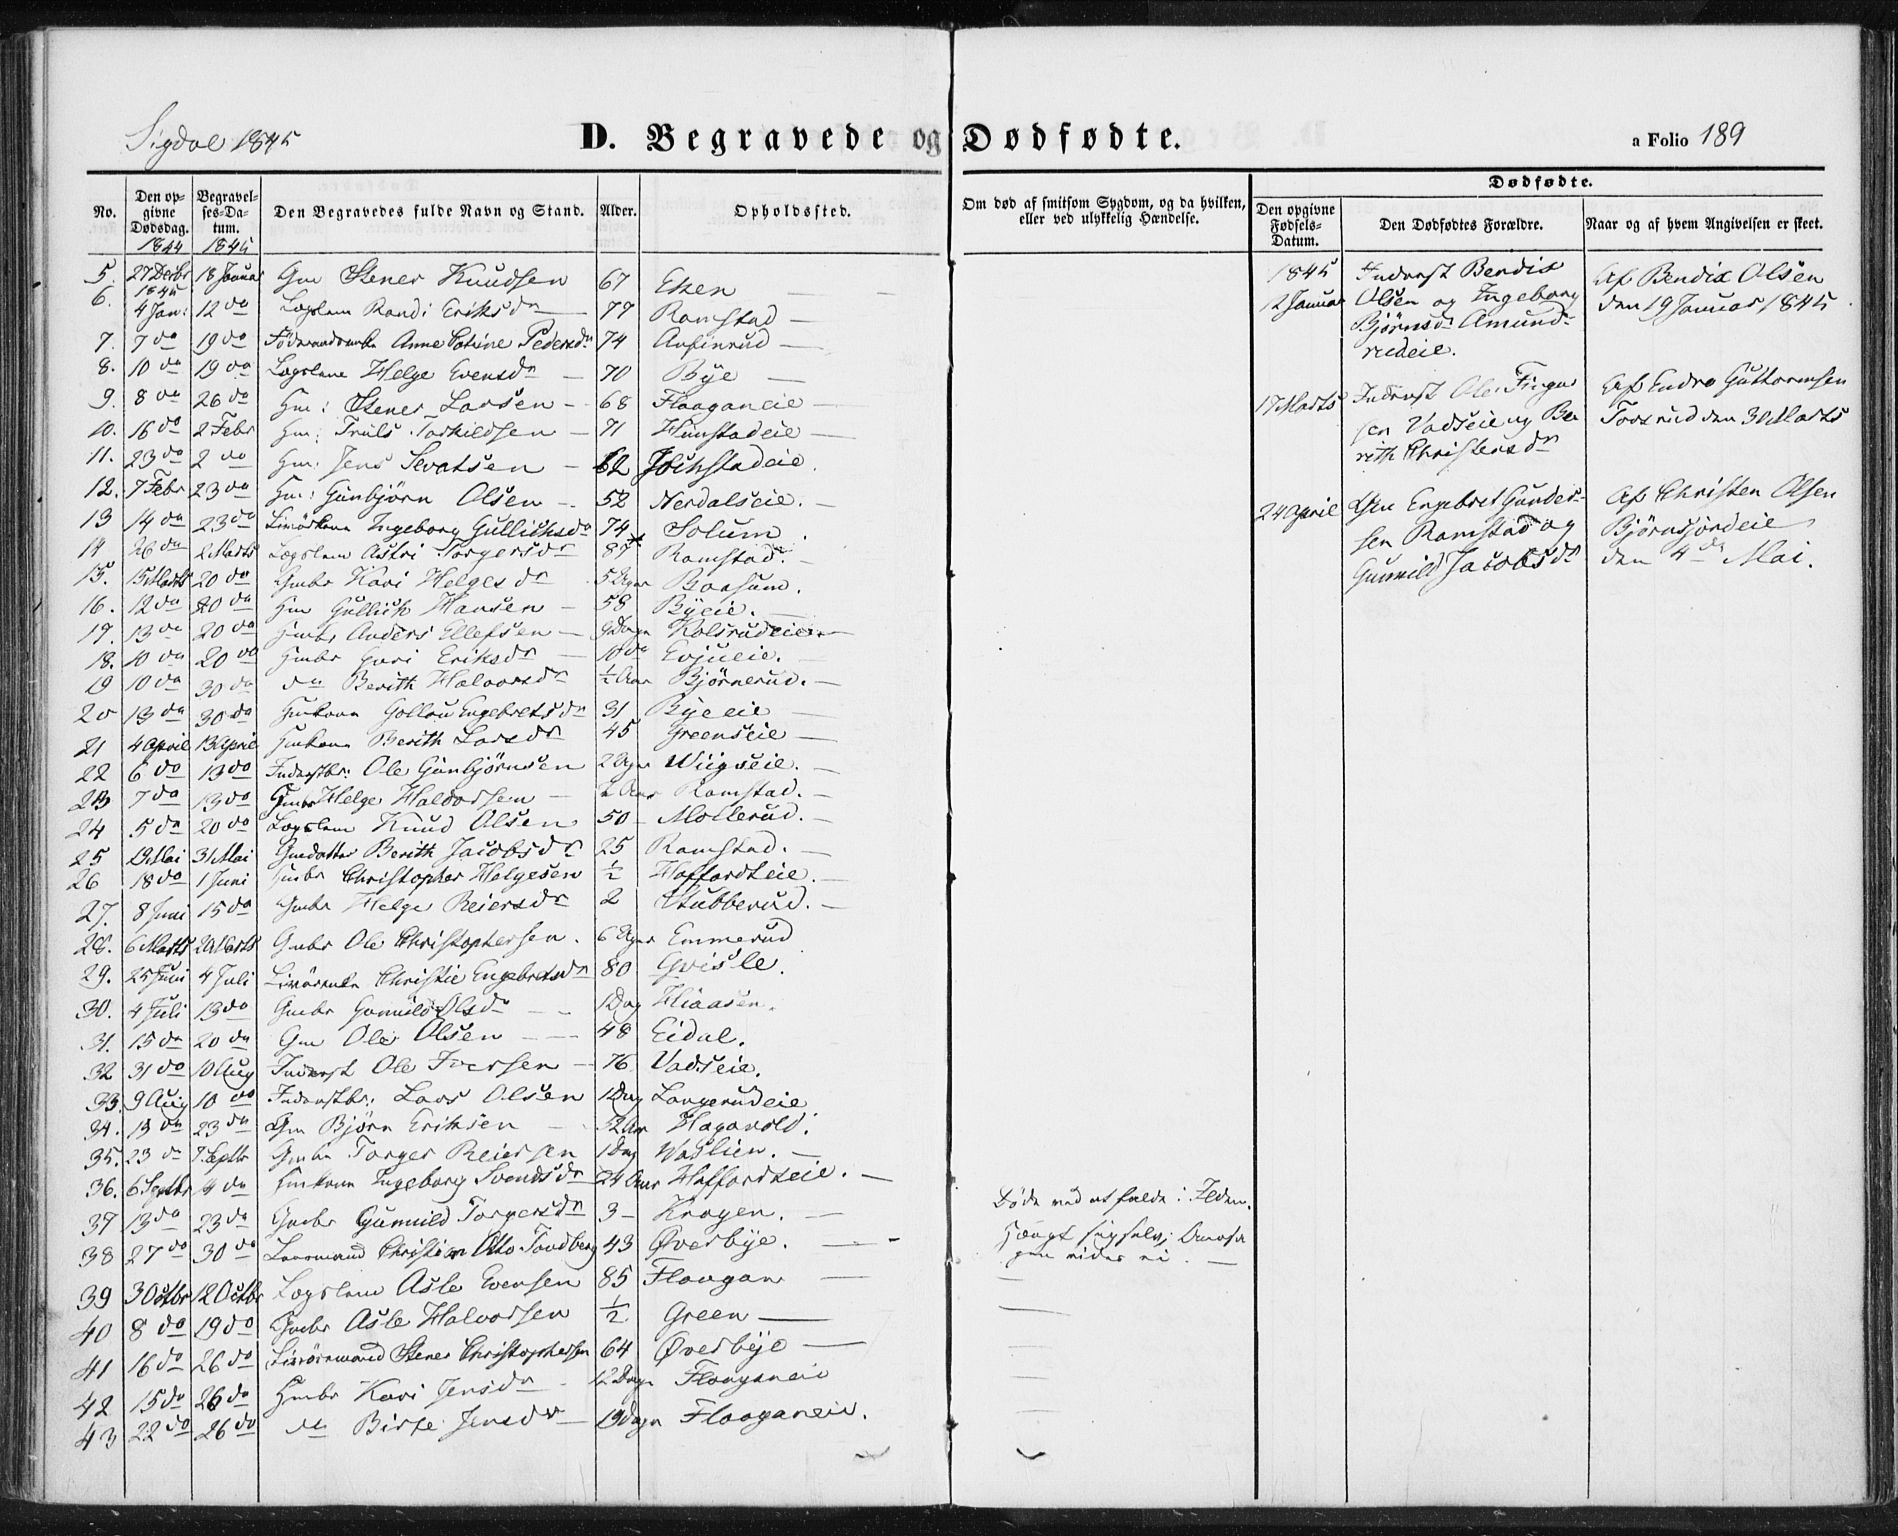 Sigdal 1845
D. Begravede og Dødfødte.
a Folio 189
No. Den opgivne Dødsdag. Begravelses-Datum. Den Begravedes fulde Navn og Stand. Alder. Opholdssted. Om død af smitsom Sygdom, og da hvilken, eller ved ulykkelig Hændelse. Dødfødte. Den opgivne Fødsels-Datum. Den Dødfødtes Forældre. Naar og af hvem Angivelsen er skeet.
1844 1845
5. 27 Decbr 18 Januar Gm Stener Knudsen 67 Enen
1845
6. 4 Jan: 12 do Lægslem Randi Eriksdr 79 Ramstad
7. 7 do 19 do Anne Catrine Pedersdr 74 Anfinrud
8. 10 do 19 do Lægslem Helge Evensdr 70 Bye
9. 8 do 26 do Hm: Stener Larsen 68 Flaaganeie
10. 16 do 2 Febr Hm: Truls Torkildsen 71 Hunstadeie
11. 23 do 2 do Hm: Jens Sevatsen 62
12. 7 Febr 23 do Hm: Gunbjörn Olsen 52 Nerdalseie.
13 14 do 23 do Ingeborg Gullichsdr 74 Solum
14 26 do 2 Marts Lægslem Astri Torgersdr 87 Ramstad.
15. 15 Marts 20 do Gmbr Kari Helgesdr 5 Uger Baasum.
16. 12 do 20 do Hm Gullich Hansen 58 Byeie.
17. 13 do 20 do Hmbr Anders Ellefsen 9 Dage Kolsrudeie
18. 10 do 20 do Hmbr Guri Eriksdr 10 do Evjueie.
19 10 do 30 do do Berith Halvorsdr ½ Aar Björnerud.
20 13 do 30 do Hmkone Engebretsdr 31 Byeeie
21 4 April 13 April Hmkone Berith Larsdr 45 Greenseie
22 6 do 13 do Inderstbr: Ole Gunbjörnsen 2 Uger Wiigseie.
23 7 do 13 do Gmbr Helge Halvorsen 2 Aar Ramstad.
24 5 do 20 do Lægslem Knud Olsen 50 Mollerud.
25 19 Mai 31 Mai Gmdatter Berith Jacobsdr 25 Ramstad.
26 18 do 1 Juni Hmbr Christopher Helgesen ½ Haffordseie.
27. 8 Juni 15 do Gmbr Helge Reiersdr 2 Stubberud.
28. 6 Marts Marts Gmbr Ole Christophersen. 6 Uger Emmerud
29. 25 Juni 4 Juli Christie Engebretsdr 80 Grisle.
30. 4 Juli 13 do Gmbr Gunnild Olsdr 1 Dag Hiaasen.
31. 15 do 20 do Gm Ole Olsen 48 Eidal.
32 31 do 10 Aug Inderst Ole Iversen 76 Vadseie.
33. 9 Aug 10 do Inderstbr: Lars Olsen 1 Dag Langerudeie
34. 13 do 23 do Gm Björn Eriksen 52 Aar
35. 23 do 7 Septbr Gmbr Torger Reiersen 1 Dag Waslien.
36. 6 Septbr 14 do Hmkone Ingeborg Svendsdr 24 Aar Haffordseie.
37 13 do 23 do Gmbr Gunnild Torgersdr 3 Kragen. Døde ved at falde i Ilden.
38 27 do 30 do Christian Otto 43 Øverbye. Hængt sig selv; Aarsagen vides ei.
39 3 Octbr 12 Octbr Lægslem Asle Evensen 85 Flaagan
40 8 do 19 do Gmbr Asle Halvorsen ½ Green
41 16 do 26 do Stener Christophersen 64 Øverbye
42 15 do 26 do Hmbr Kari Jensdr 12 Dage Flaaganeie
43 22 do 26 do do Birte Jensdr 19 Dage Flaaganeie.
1845
12 Januar Inderst Bendix Olsen og Ingeborg Björnsdr Amundrudeie. Af Bendix Olsen den 19 Januar 1845.
17 Marts Inderst Ole Vadseie og Berith Christensdr Af Endre Guttormsen Tovsrud den Marts
24 April Gm Engebret Gundersen Ramstad og Gunnild Jacobsdr Af Christen Olsen Björnsjordeie den 4de Mai.